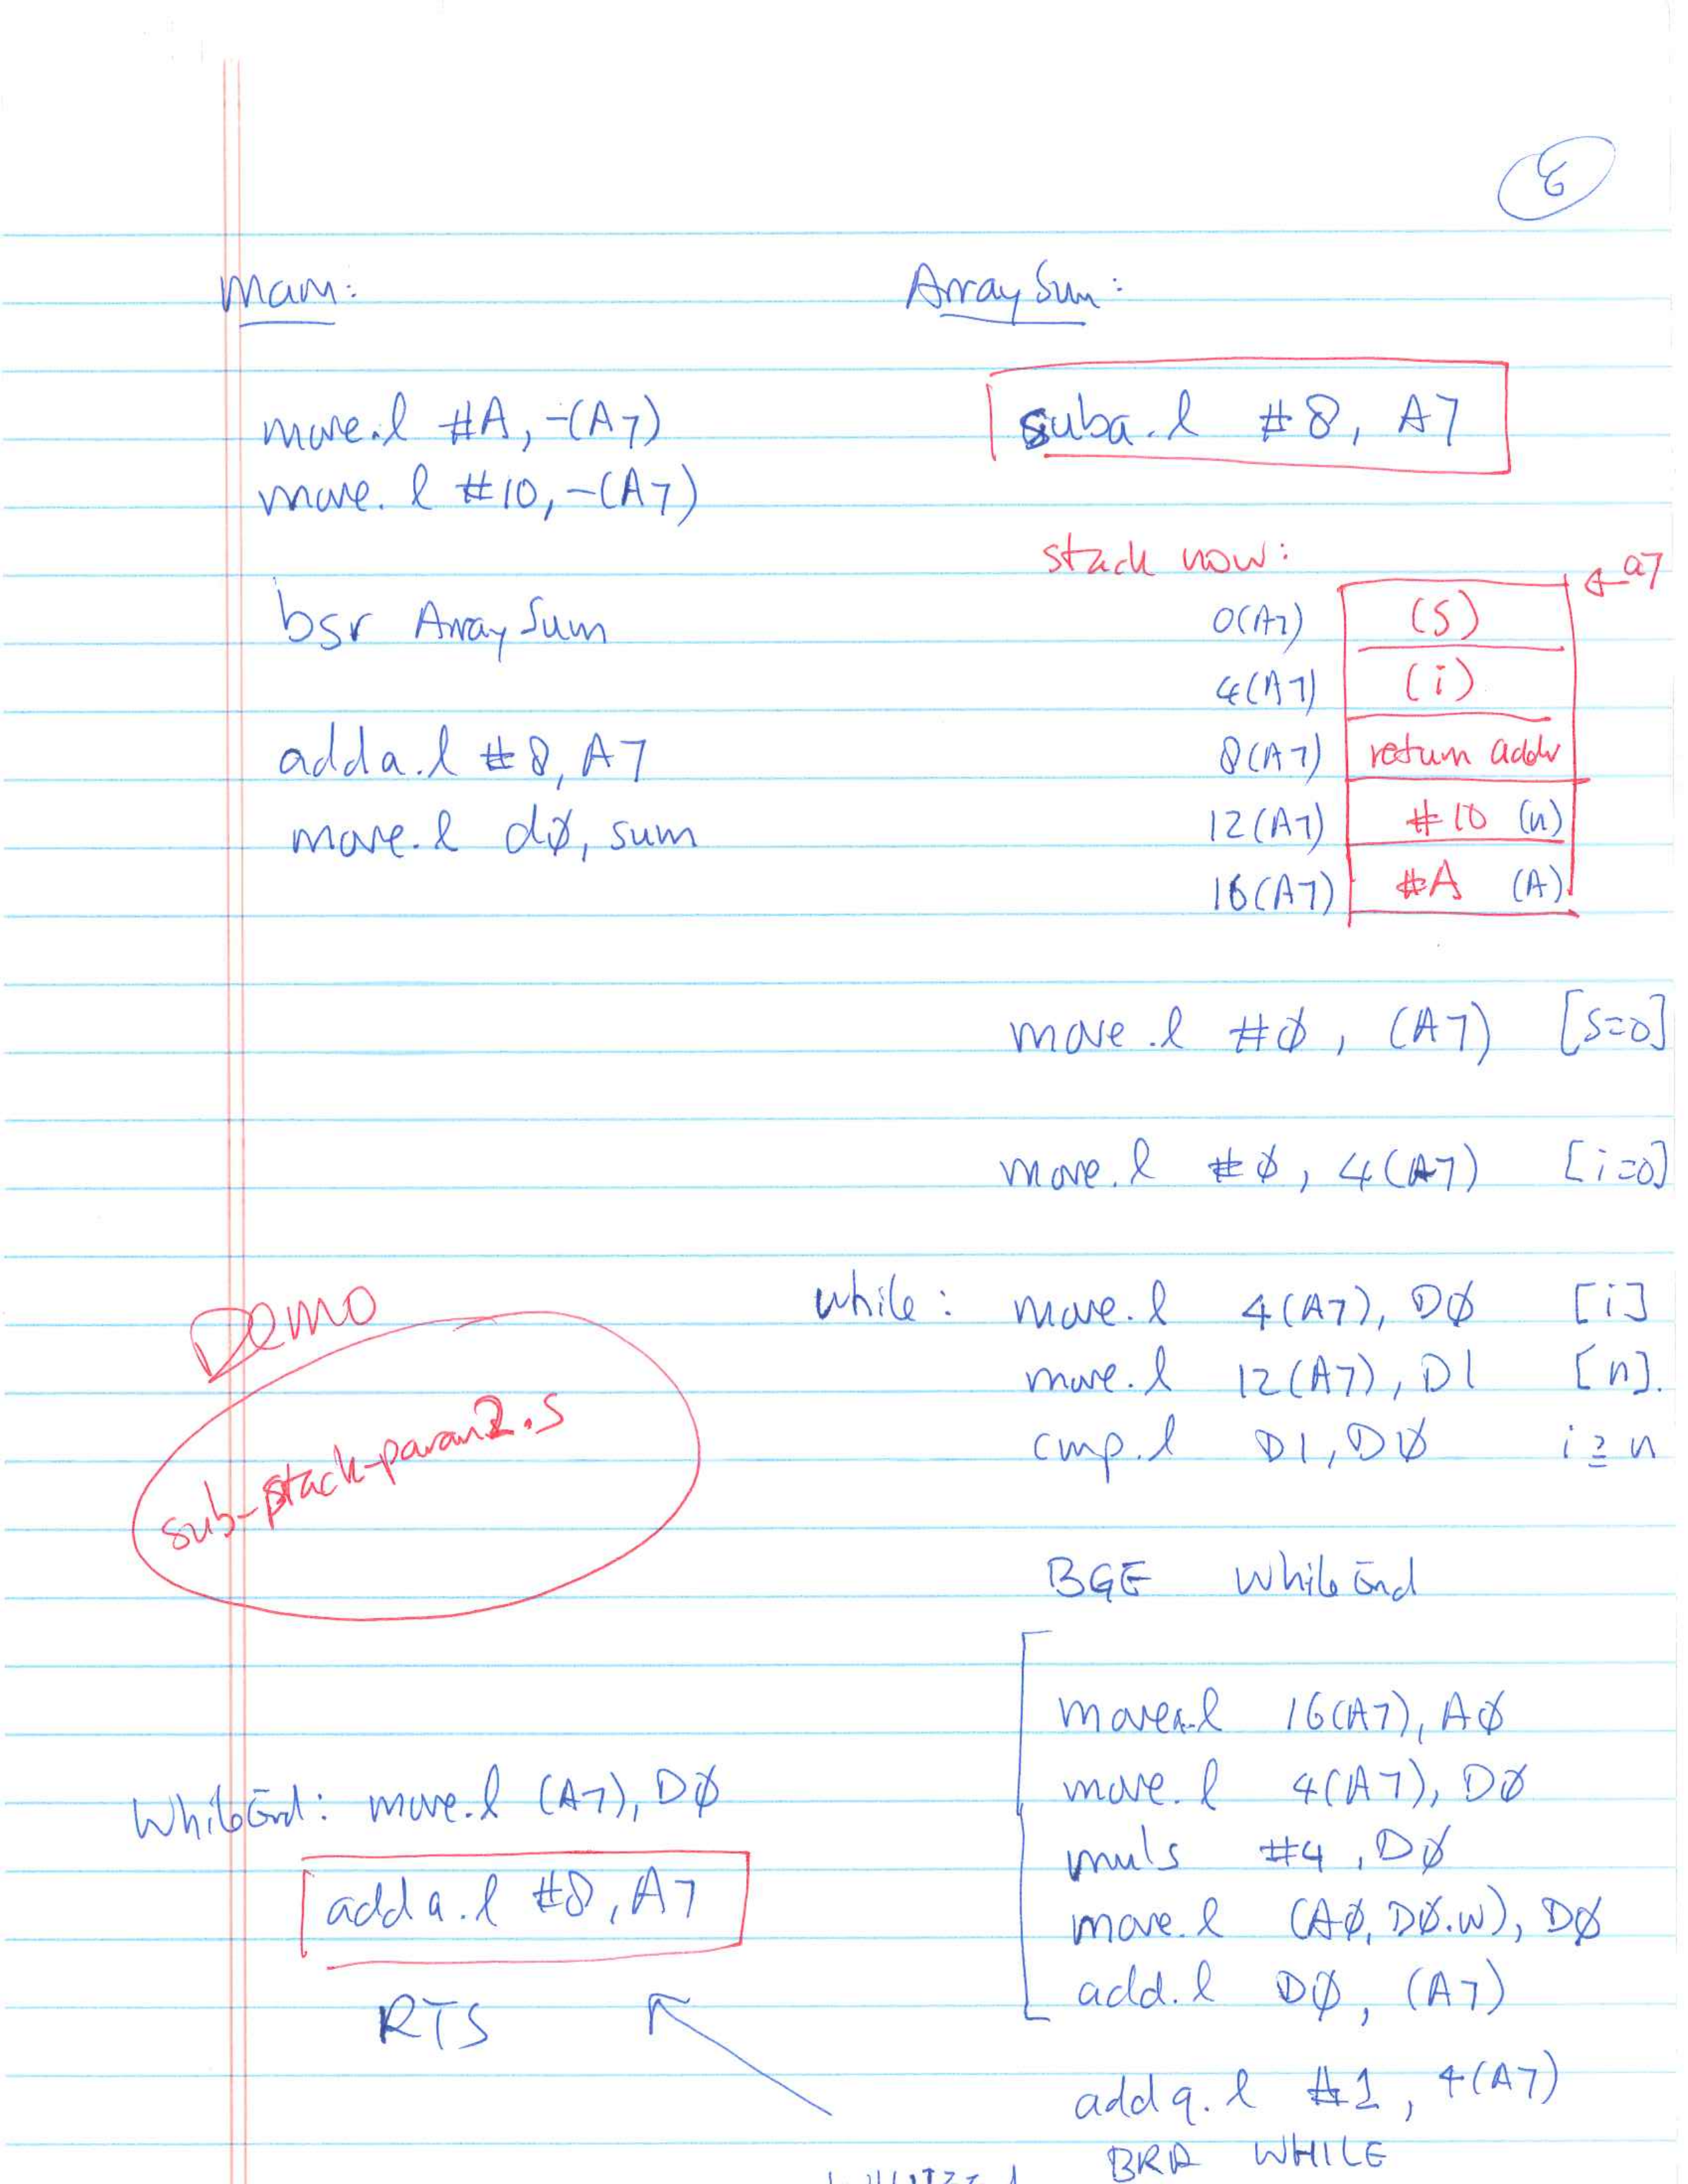 6
Main:
move.l #A, -(A7)
move.l #10, -(A7)
bsr ArraySum
adda.l #8, A7
move.l dø, sum
ArraySum:
suba.l #8, A7
stack now:
← a7
0(A7) (s)
4(A7) (i)
8(A7) return addr
12(A7) #10 (n)
16(A7) #A (A)
move.l #ø, (A7) [s=0]
move.l #ø, 4(A7) [i=0]
while: move.l 4(A7), Dø [i]
move.l 12(A7), D1 [n].
cmp.l D1, Dø i ≥ n
BGE WhileEnd
movea.l 16(A7), Aø
move.l 4(A7), Dø
muls #4, Dø
move.l (Aø, Dø.w), Dø
add.l Dø, (A7)
addq.l #1, 4(A7)
BRA WHILE
Demo
sub-stack-param2.s
WhileEnd: move.l (A7), Dø
adda.l #8, A7
RTS